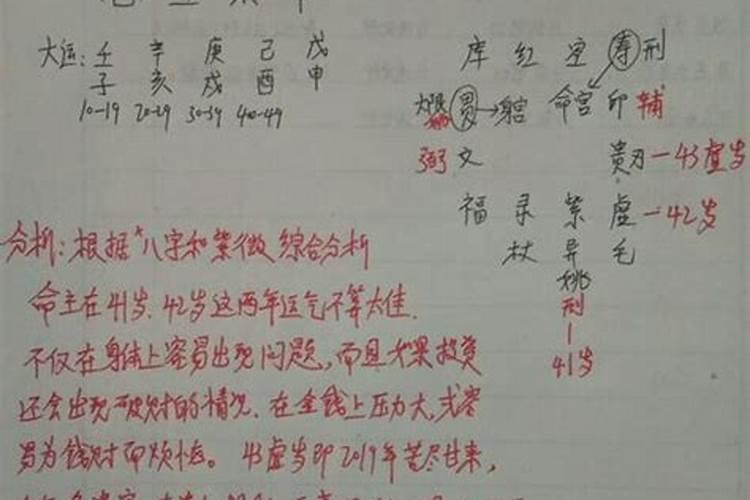 大运: 壬 辛 庚 己 戊
子 亥 戌 酉 申
10-19 20-29 30-39 40-49
库 红 空 寿 刑
大限 贯→ 命宫 印 辅
弼 文 贵刃—43虚岁
福 寻 紫 虚—42岁
杖 异 毛
姚
刑
41岁
分析:根据"八字和紫微 综合分析
命主在41岁、42岁这两年运气不算太佳.
不仅在身体上容易出现问题,而且如果投资
还会出现破财的情况、在金钱上压力大,或容
易为钱财而烦恼。43虚岁即2019年苦尽甘来,